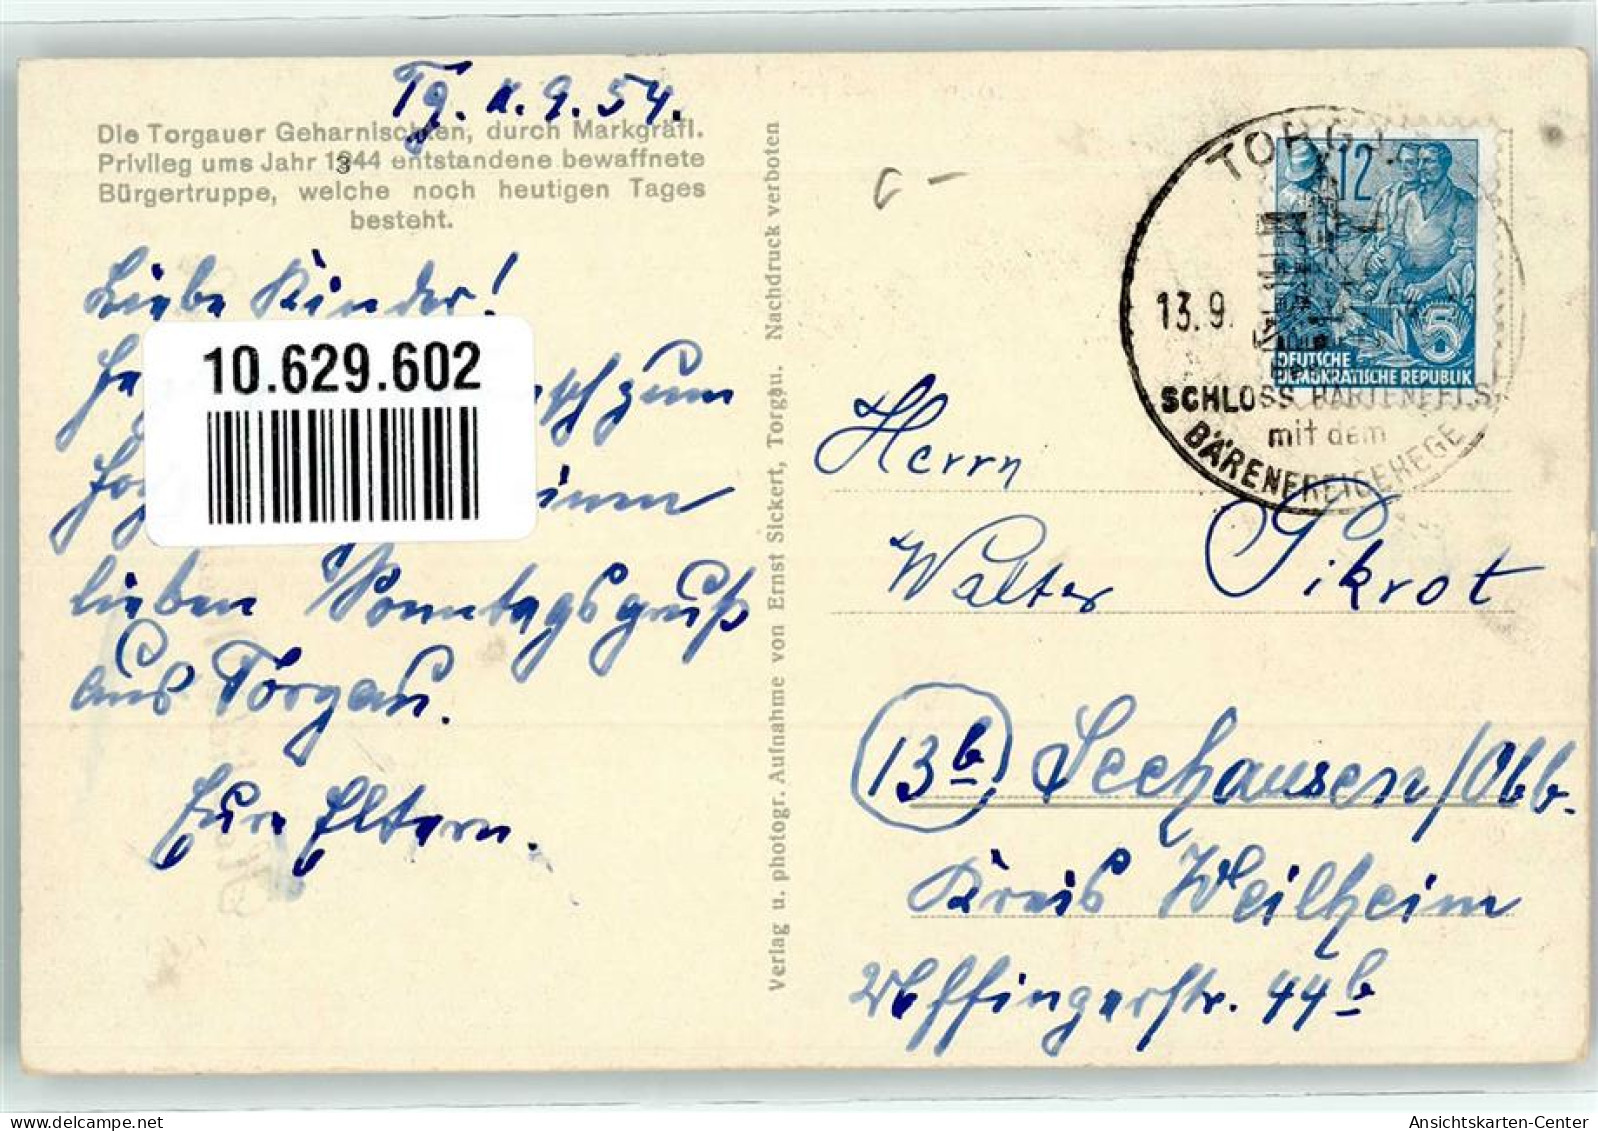 Tg. 11. 9. 54.
Die Torgauer Geharnischten, durch Markgräfl.
Privileg ums Jahr 1344 entstandene bewaffnete
Bürgertruppe, welche noch heutigen Tages
besteht.
Liebe Kinder!
zum
einen
lieben Sonntagsgruß
aus Torgau.
Eure Eltern.
10.629.602
Verlag u. photogr. Aufnahme von Ernst Sickert, Torgau. Nachdruck verboten
TORGAU
13.9.
SCHLOSS HARTENFELS
mit dem
BÄRENFREIGEHEGE
12
5
DEUTSCHE
DEMOKRATISCHE REPUBLIK
Herrn
Walter Pikrot
13b Seehausen/Obb.
Kreis Weilheim
Uffingerstr. 44b
Ansichtskarten-Center